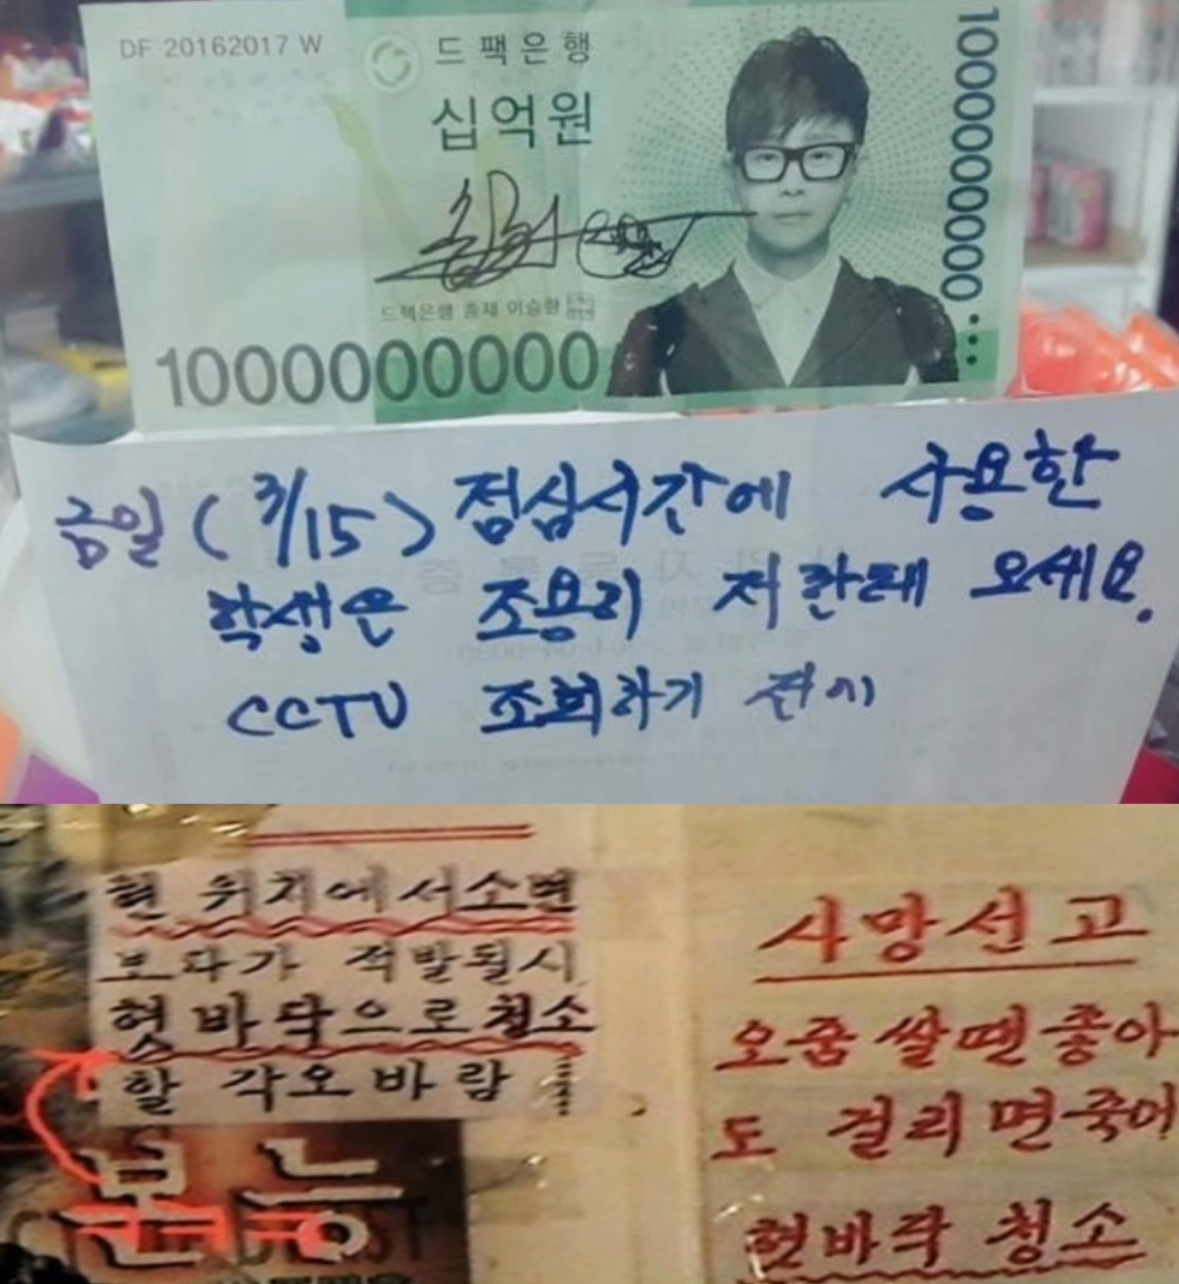 DF 20162017 W
드팩은행
십억원
드팩은행 총재 이승환
1000000000
1000000000...
금일 (3/15) 점심시간에 사용한
학생은 조용히 저한테 오세요.
CCTV 조회하기 전에
현 위치에서 소변
보다가 적발될시
혓바닥으로 청소
할 각오 바람
본능
사망선고
오줌 쌀땐 좋아
도 걸리면 죽어
혓바닥 청소